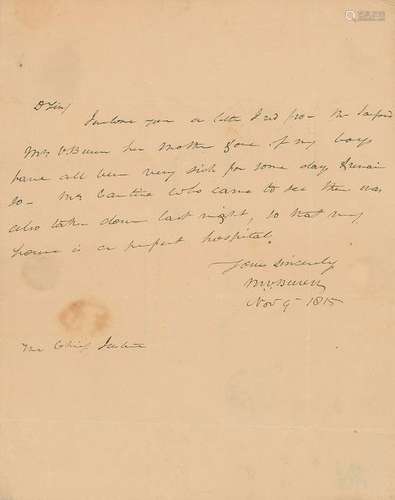 D Sir,
I enclose you a letter I recd from Mr Sanford
Mrs V.Buren her mother & one of my boys
have all been very sick for some days & remain
so - Mrs Cantine who came to see them was
also taken down last night, so that my
house is a perfect hospital.
Yours sincerely
M.V.Buren
Nov 9 1815
The Chief Justice